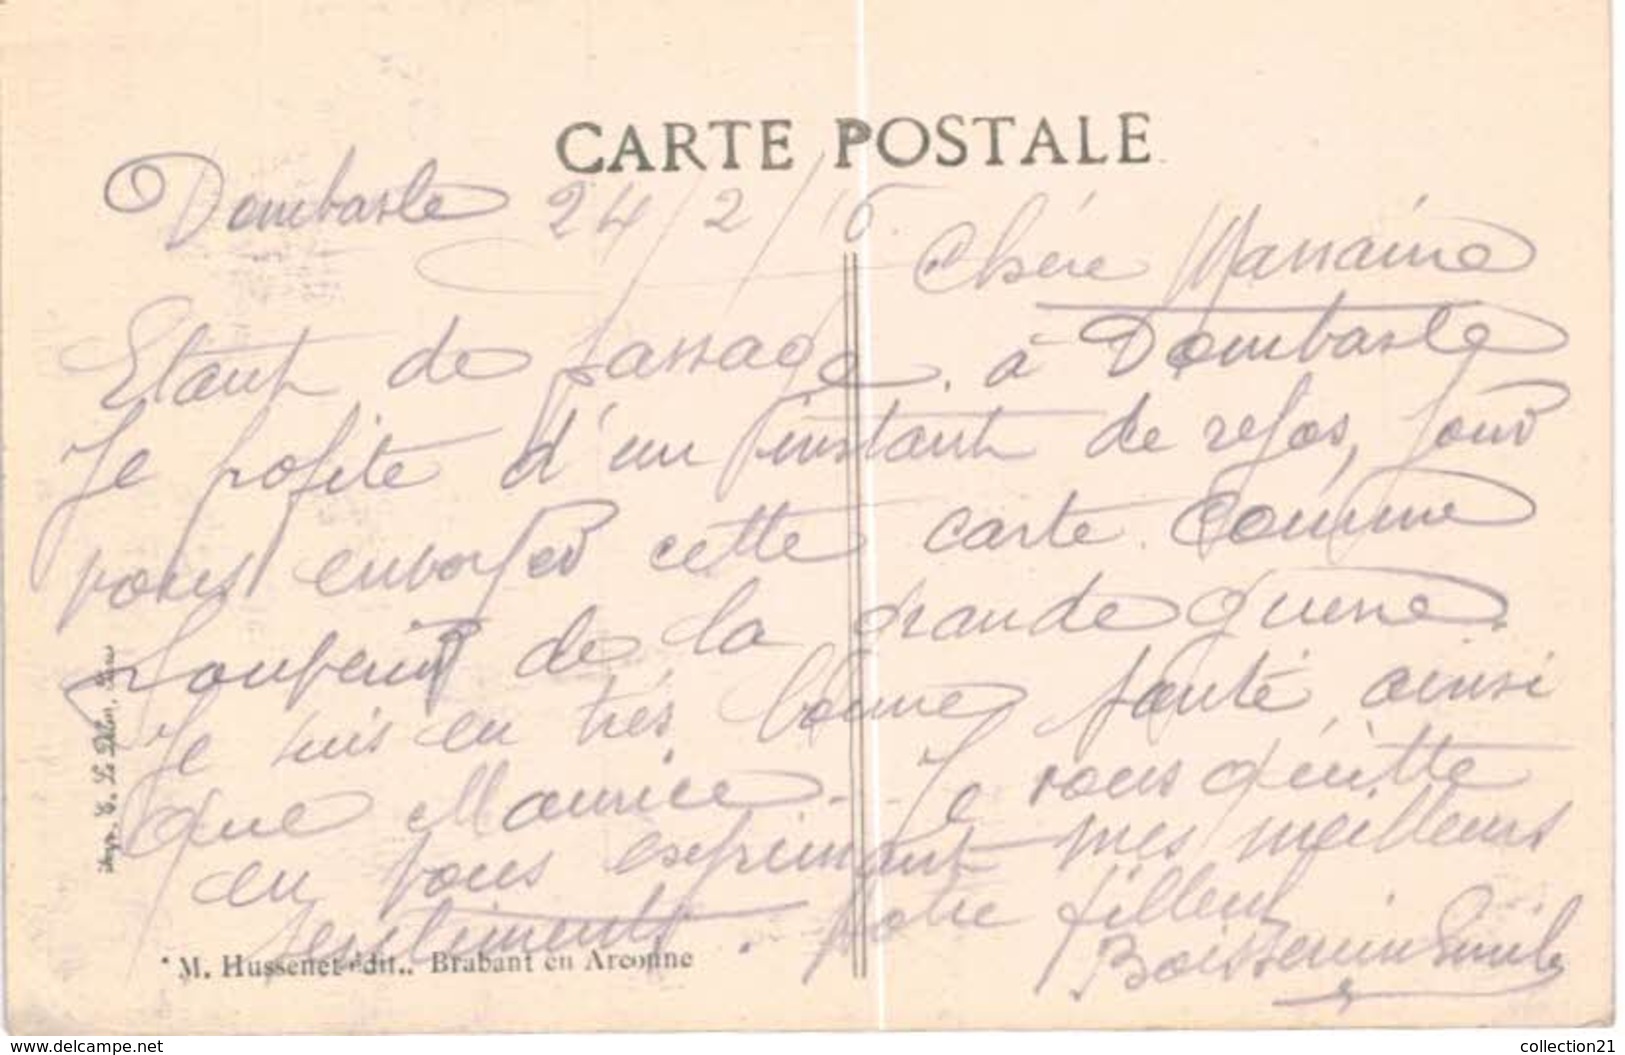 CARTE POSTALE
Dombasle 24/2/16.
Chére Marraine
Etant de passage, à Dombasle
Je profite d'un instant de repos, pour
vous envoyer cette carte. Comme
souvenir de la grande guerre.
Je suis en très bonne santé, ainsi
que Maurice... Je vous quitte
en vous exprimant mes meilleurs
sentiments. Votre filleul
Boissenin Emile
M. Hussenet édit.. Brabant en Argonne
www.delcampe.net
collection21